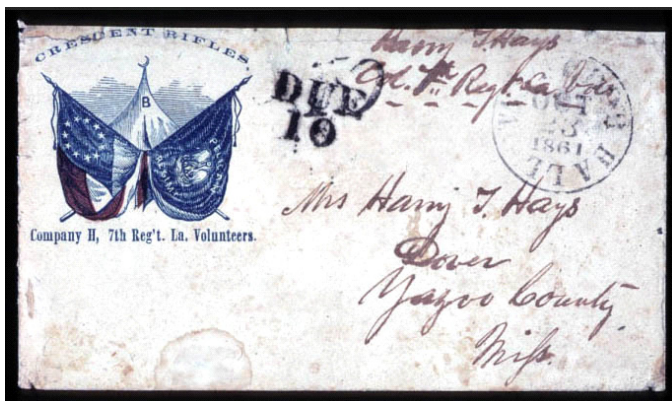 CRESCENT RIFLES.
B
Company H, 7th Reg't. La. Volunteers.
DUE
10
Harry T. Hays
Col. 7th Regt La. Vols
HALL
OCT
23
1861
Mrs Harry T. Hays
Dover
Yazoo County
Miss.